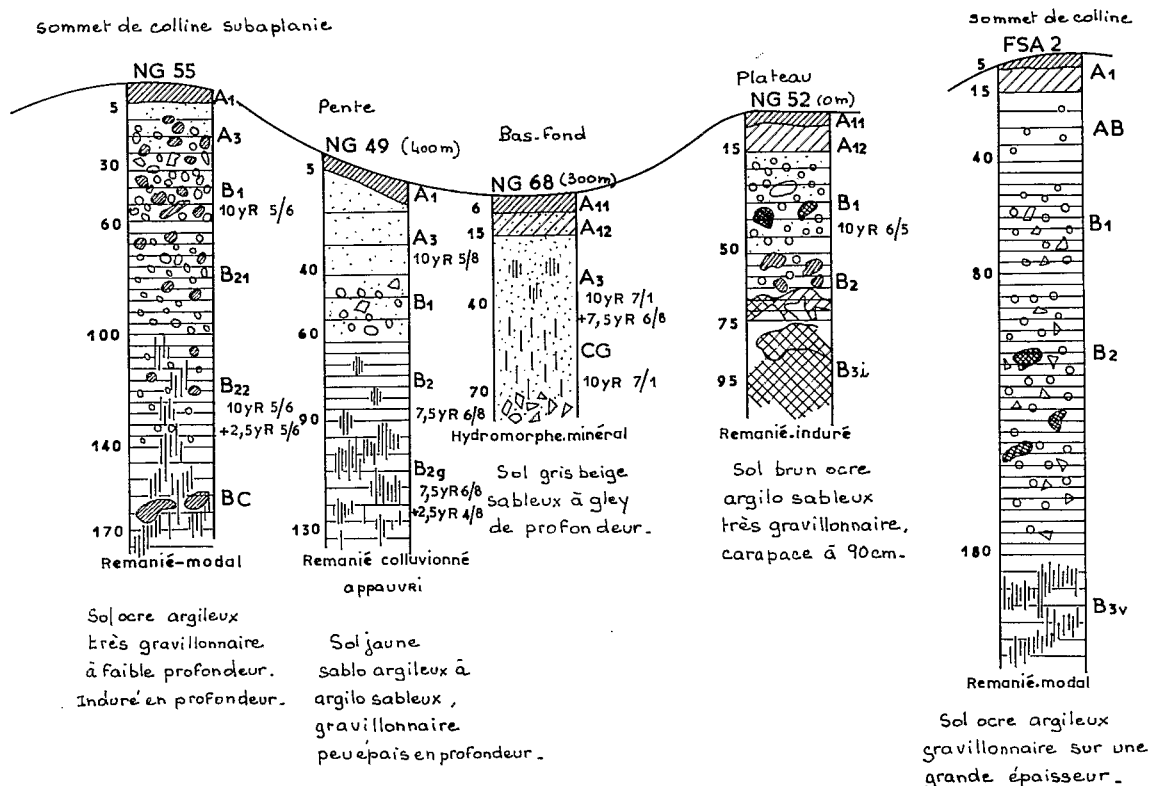 Sommet de colline subaplanie
NG 55
5
A1
A3
30
B1
10 YR 5/6
60
B21
100
B22
10 YR 5/6
+2,5 YR 5/6
140
BC
170
Remanié-modal
Sol ocre argileux
très gravillonnaire
à faible profondeur.
Induré en profondeur.
Pente
NG 49 (400m)
5
A1
A3
10 YR 5/8
40
B1
60
B2
7,5 YR 6/8
90
B2g
7,5 YR 6/8
+2,5 YR 4/8
130
Remanié colluvionné
appauvri
Sol jaune
sablo argileux à
argilo sableux,
gravillonnaire
peu épais en profondeur.
Bas-fond
NG 68 (300m)
A11
6
A12
15
A3
10 YR 7/1
+7,5 YR 6/8
40
CG
10 YR 7/1
70
Hydromorphe.minéral
Sol gris beige
sableux à gley
de profondeur.
Plateau
NG 52 (0m)
A11
A12
15
B1
10 YR 6/5
50
B2
75
B3i
95
Remanié-induré
Sol brun ocre
argilo sableux
très gravillonnaire,
carapace à 90cm.
Sommet de colline
FSA 2
5
A1
15
AB
40
B1
80
B2
180
B3v
Remanié.modal
Sol ocre argileux
gravillonnaire sur une
grande épaisseur.